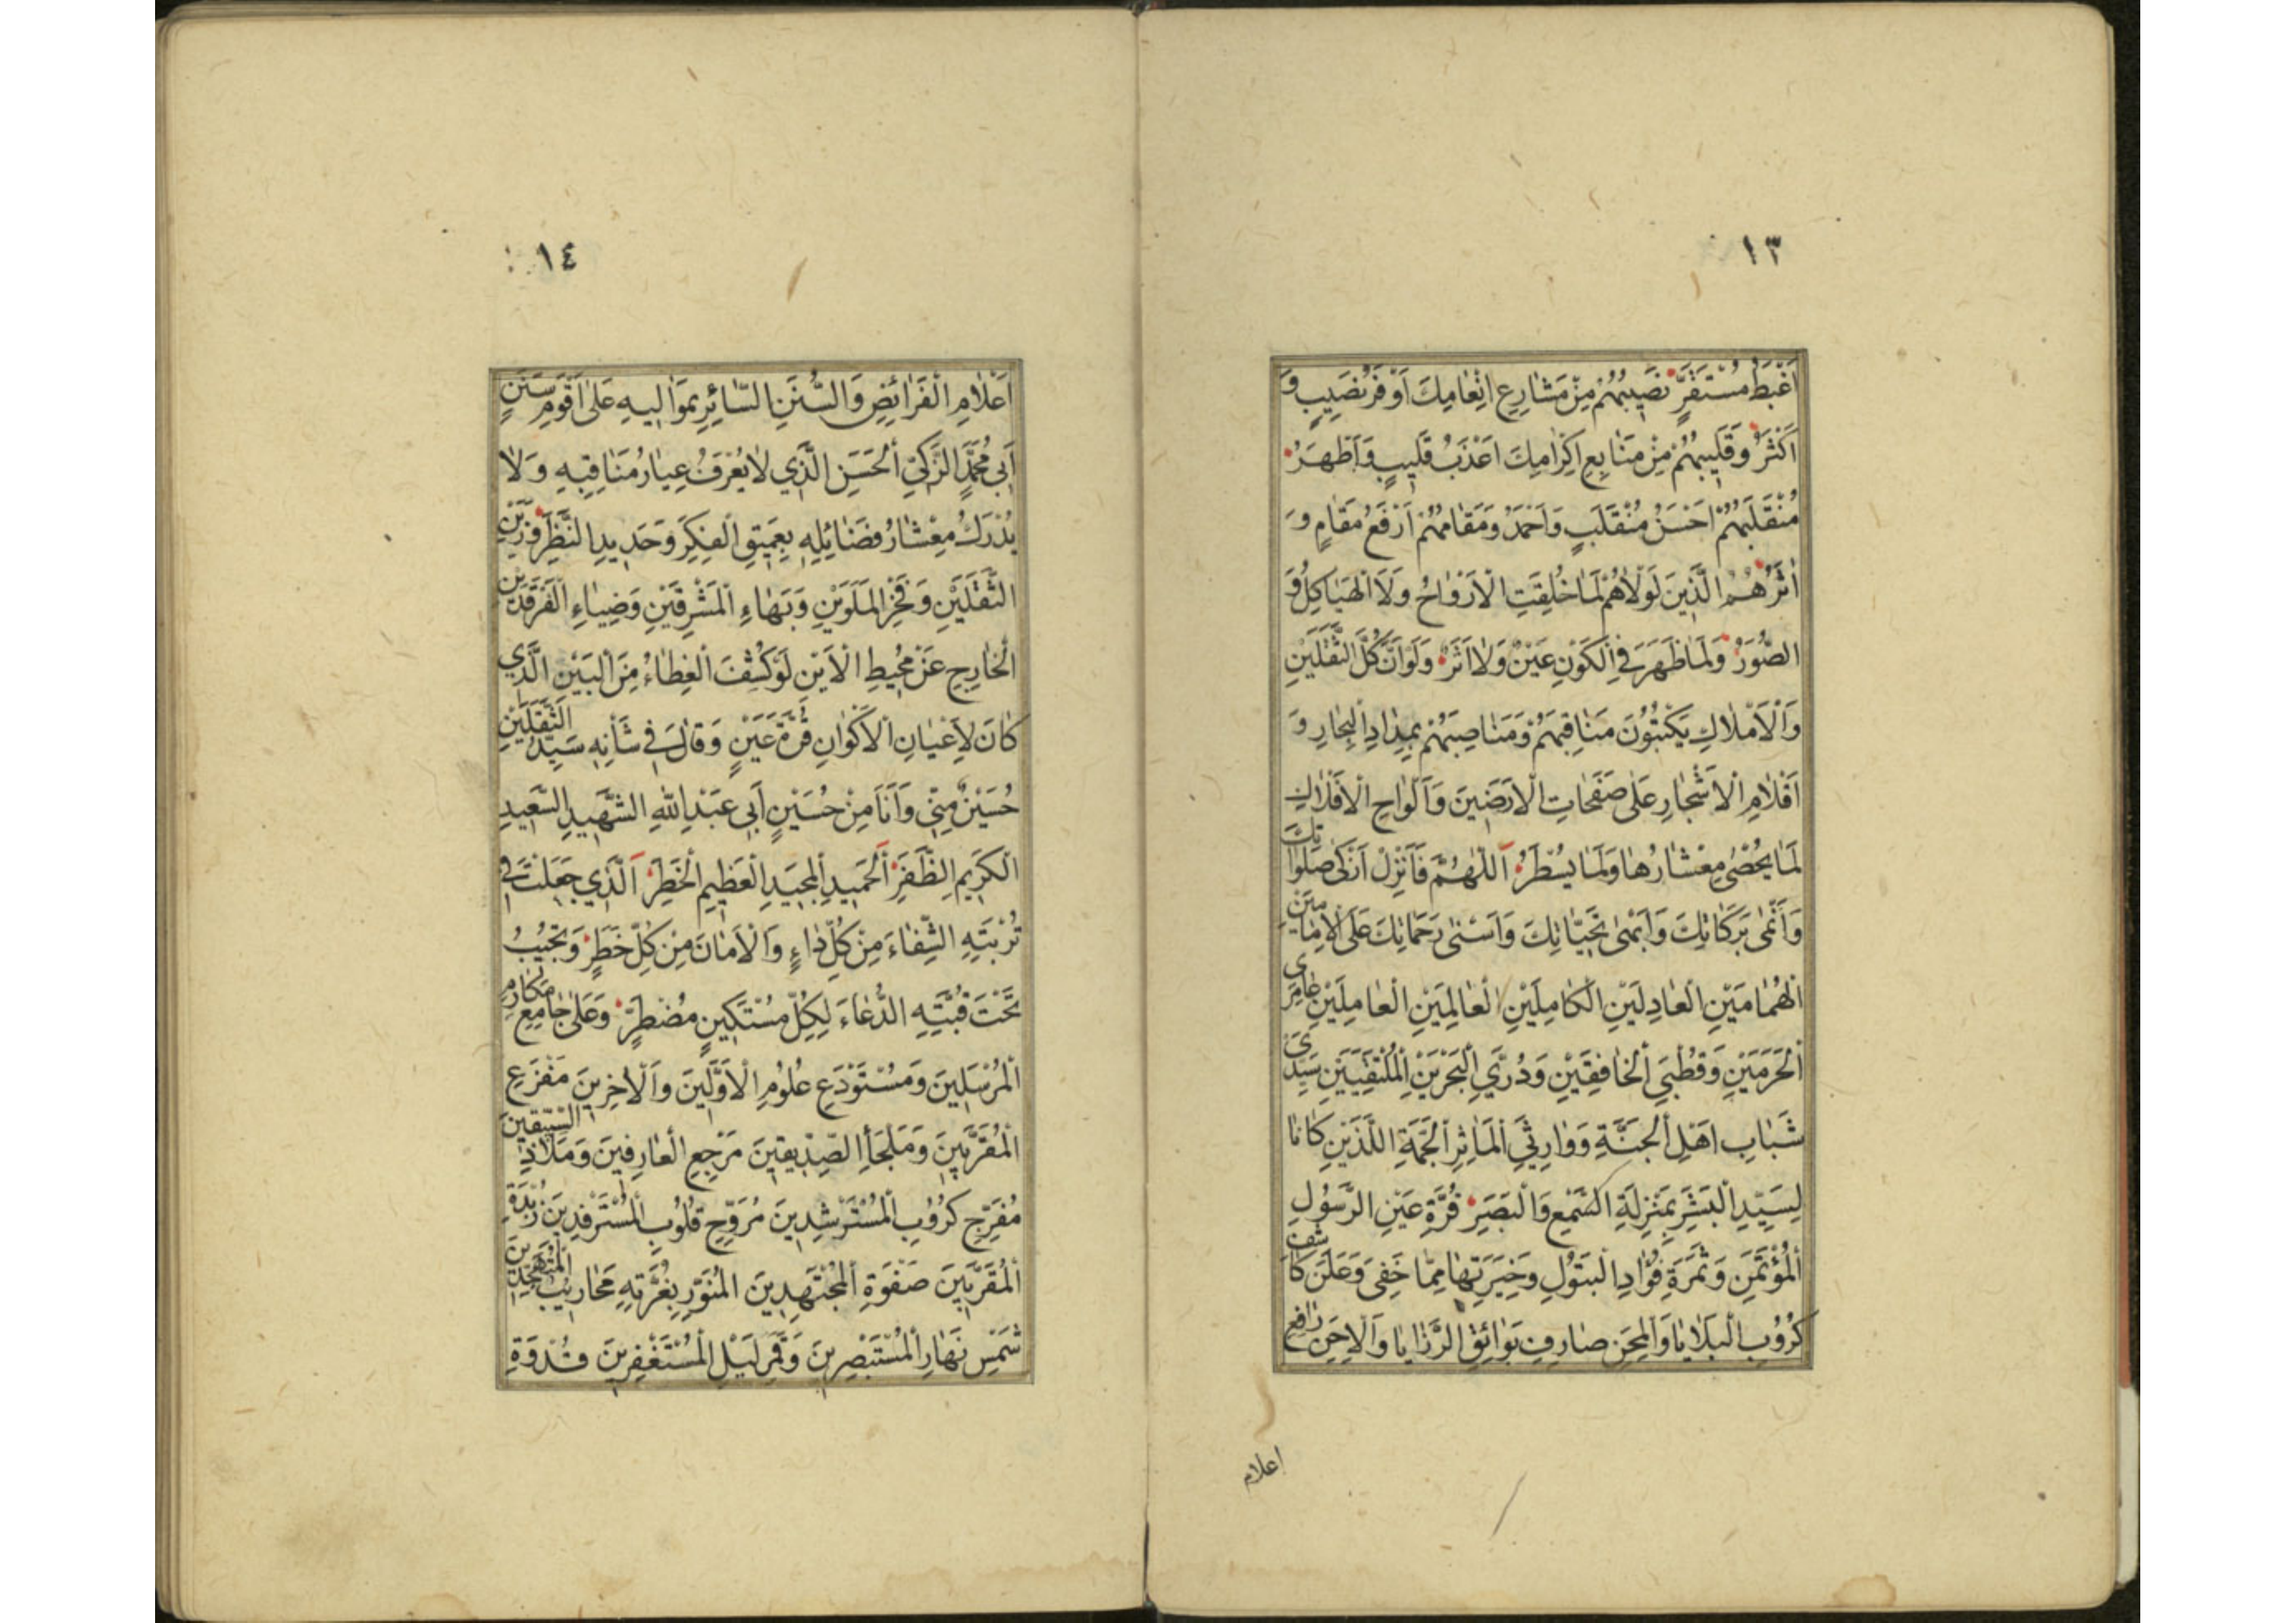 ١٣
اَغْبَطُ مُسْتَقَرٍّ نَصيبُهُمْ مِنْ مَشارِعِ اِنْعامِكَ اَوْفَرُ نَصيبٍ وَ
اَكْثَرُ وَقَليبُهُمْ مِنْ مَنابِعِ اِكْرامِكَ اَعْذَبُ قَليبٍ وَاَظْهَرُ
مُنْقَلَبُهُمْ اَحْسَنُ مُنْقَلَبٍ وَاَحْمَدُ وَمَقامُهُمْ اَرْفَعُ مَقامٍ وَ
هُمُ الَّذينَ لَوْلاهُمْ لَما خُلِقَتِ الْاَرْواحُ وَلَا الْهَياكِلُ وَ
الصُّوَرُ وَلَما ظَهَرَ فِي الْكَوْنِ عَيْنٌ وَلا اَثَرٌ وَلَوْ اَنَّ كُلَّ الثَّقَلَيْنِ
وَالْاَمْلاكِ يَكْتُبُونَ مَناقِبَهُمْ وَمَناصِبَهُمْ بِمِدادِ الْبِحارِ وَ
اَقْلامِ الْاَشْجارِ عَلى صَفَحاتِ الْاَرَضينَ وَاَلْواحِ الْاَفْلاكِ
لَما يُحْصى مِعْشارُها وَلَما يُسْطَرُ اَللّهُمَّ فَاَنْزِلْ اَزْكى صَلَواتِكَ
وَاَنْمى بَرَكاتِكَ وَاَبْهى تَحِيّاتِكَ وَاَسْنى رَحَماتِكَ عَلَى الْاِمامَيْنِ
الْهُمامَيْنِ الْعادِلَيْنِ الْكامِلَيْنِ الْعالِمَيْنِ الْعامِلَيْنِ عامِرَيِ
الْحَرَمَيْنِ وَقُطْبَيِ الْخافِقَيْنِ وَدُرَّيِ الْبَحْرَيْنِ الْمُلْتَقِيَيْنِ سَيِّدَيْ
شَبابِ اَهْلِ الْجَنَّةِ وَوارِثَيِ الْمَاثِرِ الْجَمَّةِ اللَّذَيْنِ كانا
لِسَيِّدِ الْبَشَرِ بِمَنْزِلَةِ السَّمْعِ وَالْبَصَرِ قُرَّةِ عَيْنِ الرَّسُولِ
الْمُؤْتَمَنِ وَثَمَرَةِ فُؤادِ الْبَتُولِ وَخِيَرَتِها مِمّا خَفِيَ وَعَلَنَ كاشِفِ
كُرُوبِ الْبَلايا وَالْمِحَنِ صارِفِ بَوائِقِ الرَّزايا وَالْاِحَنِ رافِعِ
اعلام
١٤
اَعْلامِ الْفَرائِضِ وَالسُّنَنِ السّائِرِ بِمَوالِيهِ عَلى اَقْوَمِ سَنَنٍ
اَبي مُحَمَّدٍ الزَّكِيِّ الْحَسَنِ الَّذي لا يُعْرَفُ عِيارُ مَناقِبِهِ وَلا
يُدْرَكُ مِعْشارُ فَضائِلِهِ بِعَميقِ الْفِكَرِ وَحَديدِ النَّظَرِ وَزَيْنِ
الثَّقَلَيْنِ وَفَخْرِ الْمَلَوَيْنِ وَبَهاءِ الْمَشْرِقَيْنِ وَضِياءِ الْفَرْقَدَيْنِ
الْخارِجِ عَنْ مُحيطِ الْاَيْنِ لَوْ كُشِفَ الْغِطاءُ مِنَ الْبَيْنِ الَّذي
كانَ لِاَعْيانِ الْاَكْوانِ قُرَّةَ عَيْنٍ وَقالَ في شَأْنِهِ سَيِّدُ الثَّقَلَيْنِ
حُسَيْنٌ مِنّي وَاَنَا مِنْ حُسَيْنٍ اَبي عَبْدِ اللهِ الشَّهيدِ السَّعيدِ
الْكَريمِ الظَّفَرِ اَلْحَميدِ الْمَجيدِ الْعَظيمِ الْخَطَرِ اَلَّذي جَعَلْتَ في
تُرْبَتِهِ الشِّفاءَ مِنْ كُلِّ داءٍ وَالْاَمانَ مِنْ كُلِّ خَطَرٍ وَتُجيبُ
تَحْتَ قُبَّتِهِ الدُّعاءَ لِكُلِّ مُسْتَكينٍ مُضْطَرٍّ وَعَلى جامِعِ مَكارِمِ
الْمُرْسَلينَ وَمُسْتَوْدَعِ عُلُومِ الْاَوَّلينَ وَالْاخِرينَ مَفْزَعِ
الْمُقَرَّبينَ وَمَلْجَأِ الصِّدّيقينَ مَرْجِعِ الْعارِفينَ وَمَلاذِ
مُفَرِّجِ كُرُوبِ الْمُسْتَرْشِدينَ مُرَوِّحِ قُلُوبِ الْمُسْتَرْفِدينَ زُبْدَةِ
الْمُقَرَّبينَ صَفْوَةِ الْمُجْتَهِدينَ الْمُنَوَّرِ بِغُرَّتِهِ مَحاريبُ الْمُتَهَجِّدينَ
شَمْسِ نَهارِ الْمُسْتَبْصِرينَ وَقَمَرِ لَيْلِ الْمُسْتَغْفِرينَ قُدْوَةِ